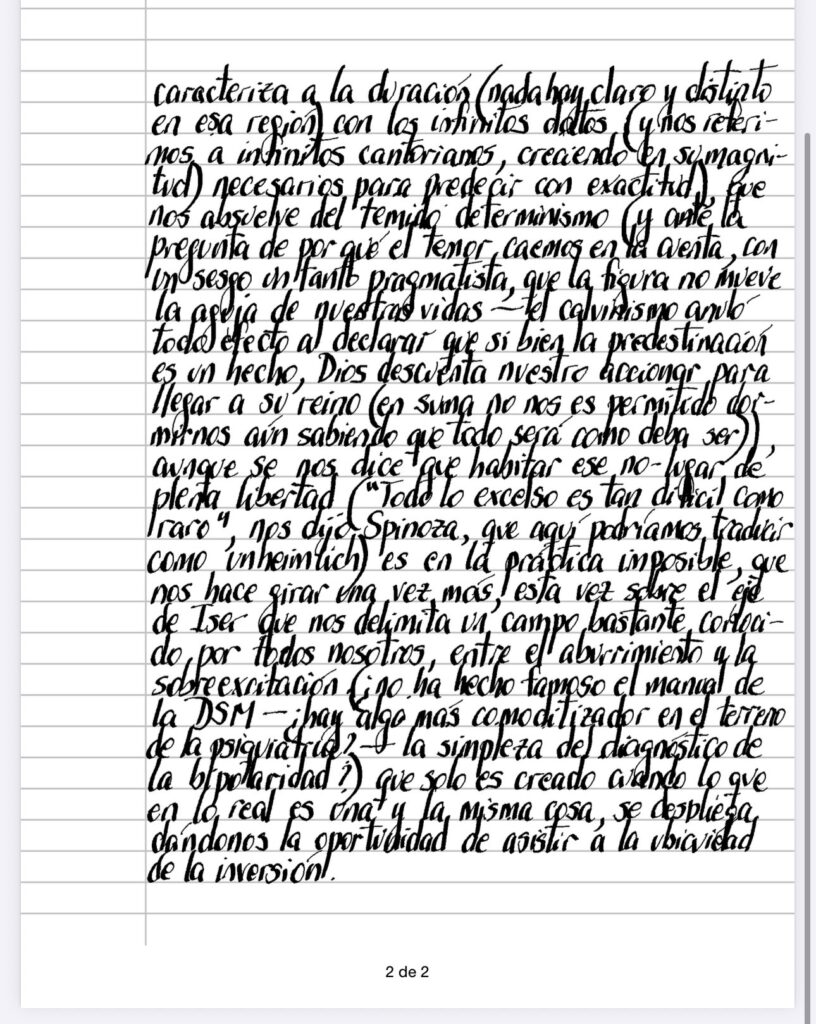 caracteriza a la duración (nada hay claro y distinto
en esa región) con los infinitos datos (y nos referi-
mos a infinitos cantorianos, creciendo en su magni-
tud) necesarios para predecir con exactitud), que
nos absuelve del temido determinismo (y ante la
pregunta de por qué el temor, caemos en la cuenta, con
un sesgo un tanto pragmatista, que la figura no mueve
la aguja de nuestras vidas — el calvinismo anuló
todo efecto al declarar que si bien la predestinación
es un hecho, Dios descuenta nuestro accionar para
llegar a su reino (en suma no nos es permitido dor-
mirnos aún sabiendo que todo será como deba ser)),
aunque se nos dice que habitar ese no-lugar de
plena libertad ("Todo lo excelso es tan difícil como
raro", nos dijo Spinoza, que aquí podríamos traducir
como unheimlich) es en la práctica imposible, que
nos hace girar una vez más, esta vez sobre el eje
de Iser que nos delimita un campo bastante conoci-
do por todos nosotros, entre el aburrimiento y la
sobreexcitación (¿no ha hecho famoso el manual de
la DSM — ¿hay algo más comoditizador en el terreno
de la psiquiatría? — la simpleza del diagnóstico de
la bipolaridad?) que solo es creado cuando lo que
en lo real es una y la misma cosa, se despliega,
dándonos la oportunidad de asistir a la ubicuidad
de la inversión.
2 de 2